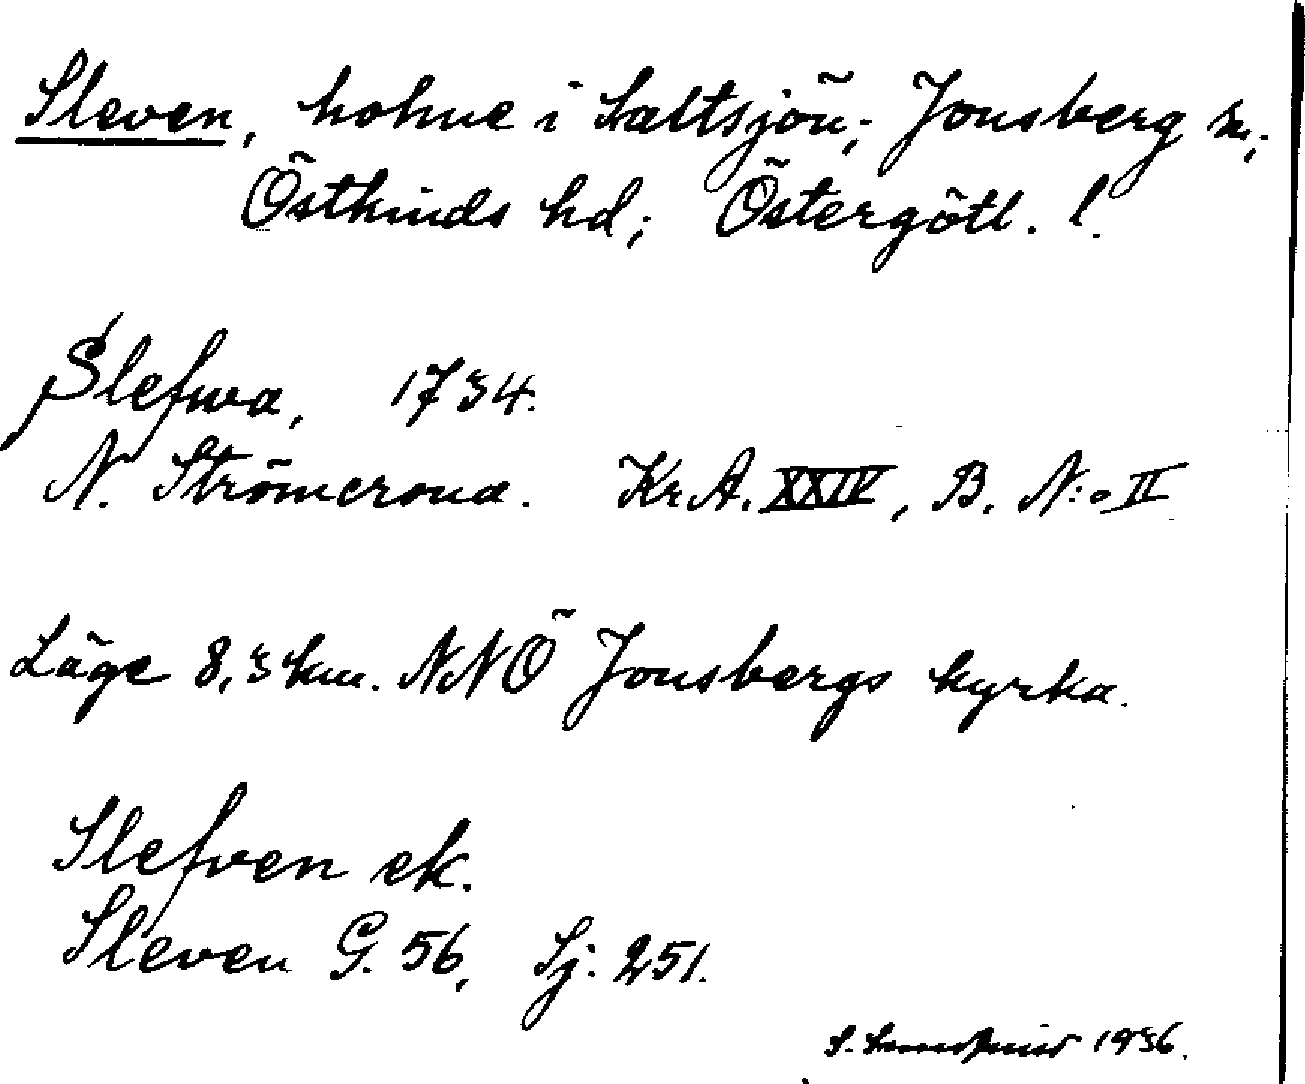 Sleven, holme i Saltsjön; Jonsberg sn;
Östkinds hd; Östergötl. l.
Slefwa, 1734.
N. Strömcrona. Kr.A. XXIV, B. N:o II
Läge 8,3 km. NNÖ Jonsbergs kyrka.
Slefven ek.
Sleven G. 56, Sj. 251.
S. 1936.